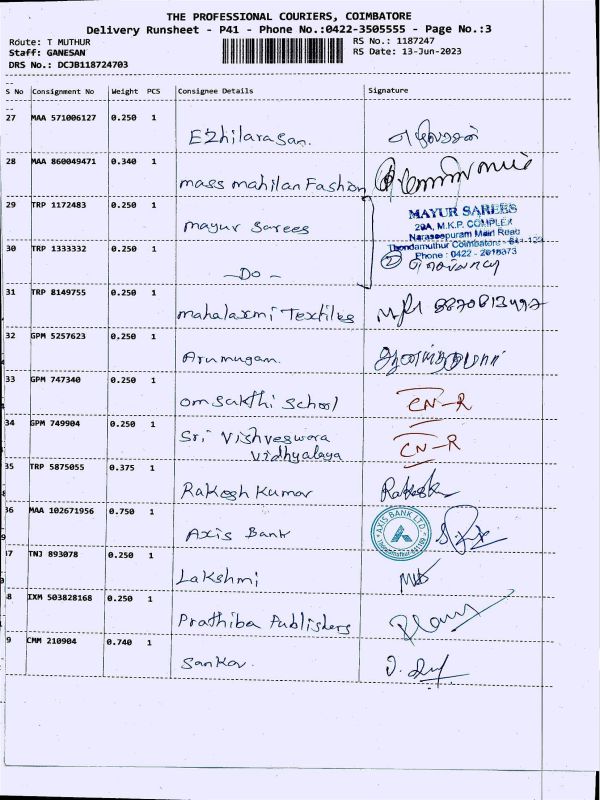 THE PROFESSIONAL COURIERS, COIMBATORE
Delivery Runsheet - P41 - Phone No.:0422-3505555 - Page No.:3
Route: T MUTHUR
RS No.: 1187247
Staff: GANESAN
RS Date: 13-Jun-2023
DRS No.: DCJB118724703
S No Consignment No Weight PCS Consignee Details Signature
27 MAA 571006127 0.250 1
Ezhilarasan.
28 MAA 860049471 0.340 1
mass mahilan Fashion
29 TRP 1172483 0.250 1
mayur sarees
MAYUR SAREES
29A, M.K.P. COMPLEX
Naraseepuram Main Road
Thondamuthur Coimbatore - 641 109
Phone : 0422 - 2618373
30 TRP 1333332 0.250 1
-Do-
2
31 TRP 8149755 0.250 1
mahalaxmi Textiles
32 GPM 5257623 0.250 1
Arumugam.
33 GPM 747340 0.250 1
om sakthi school CN-R
34 GPM 749904 0.250 1
Sri Vishveswara
Vidhyalaya CN-R
35 TRP 5875055 0.375 1
Rakesh Kumar Rakesh
36 MAA 102671956 0.750 1
Axis Bank
AXIS BANK LTD.
37 TNJ 893078 0.250 1
Lakshmi
8 IXM 503828168 0.250 1
Prathiba Publishers
9 CMM 210904 0.740 1
Sankar.